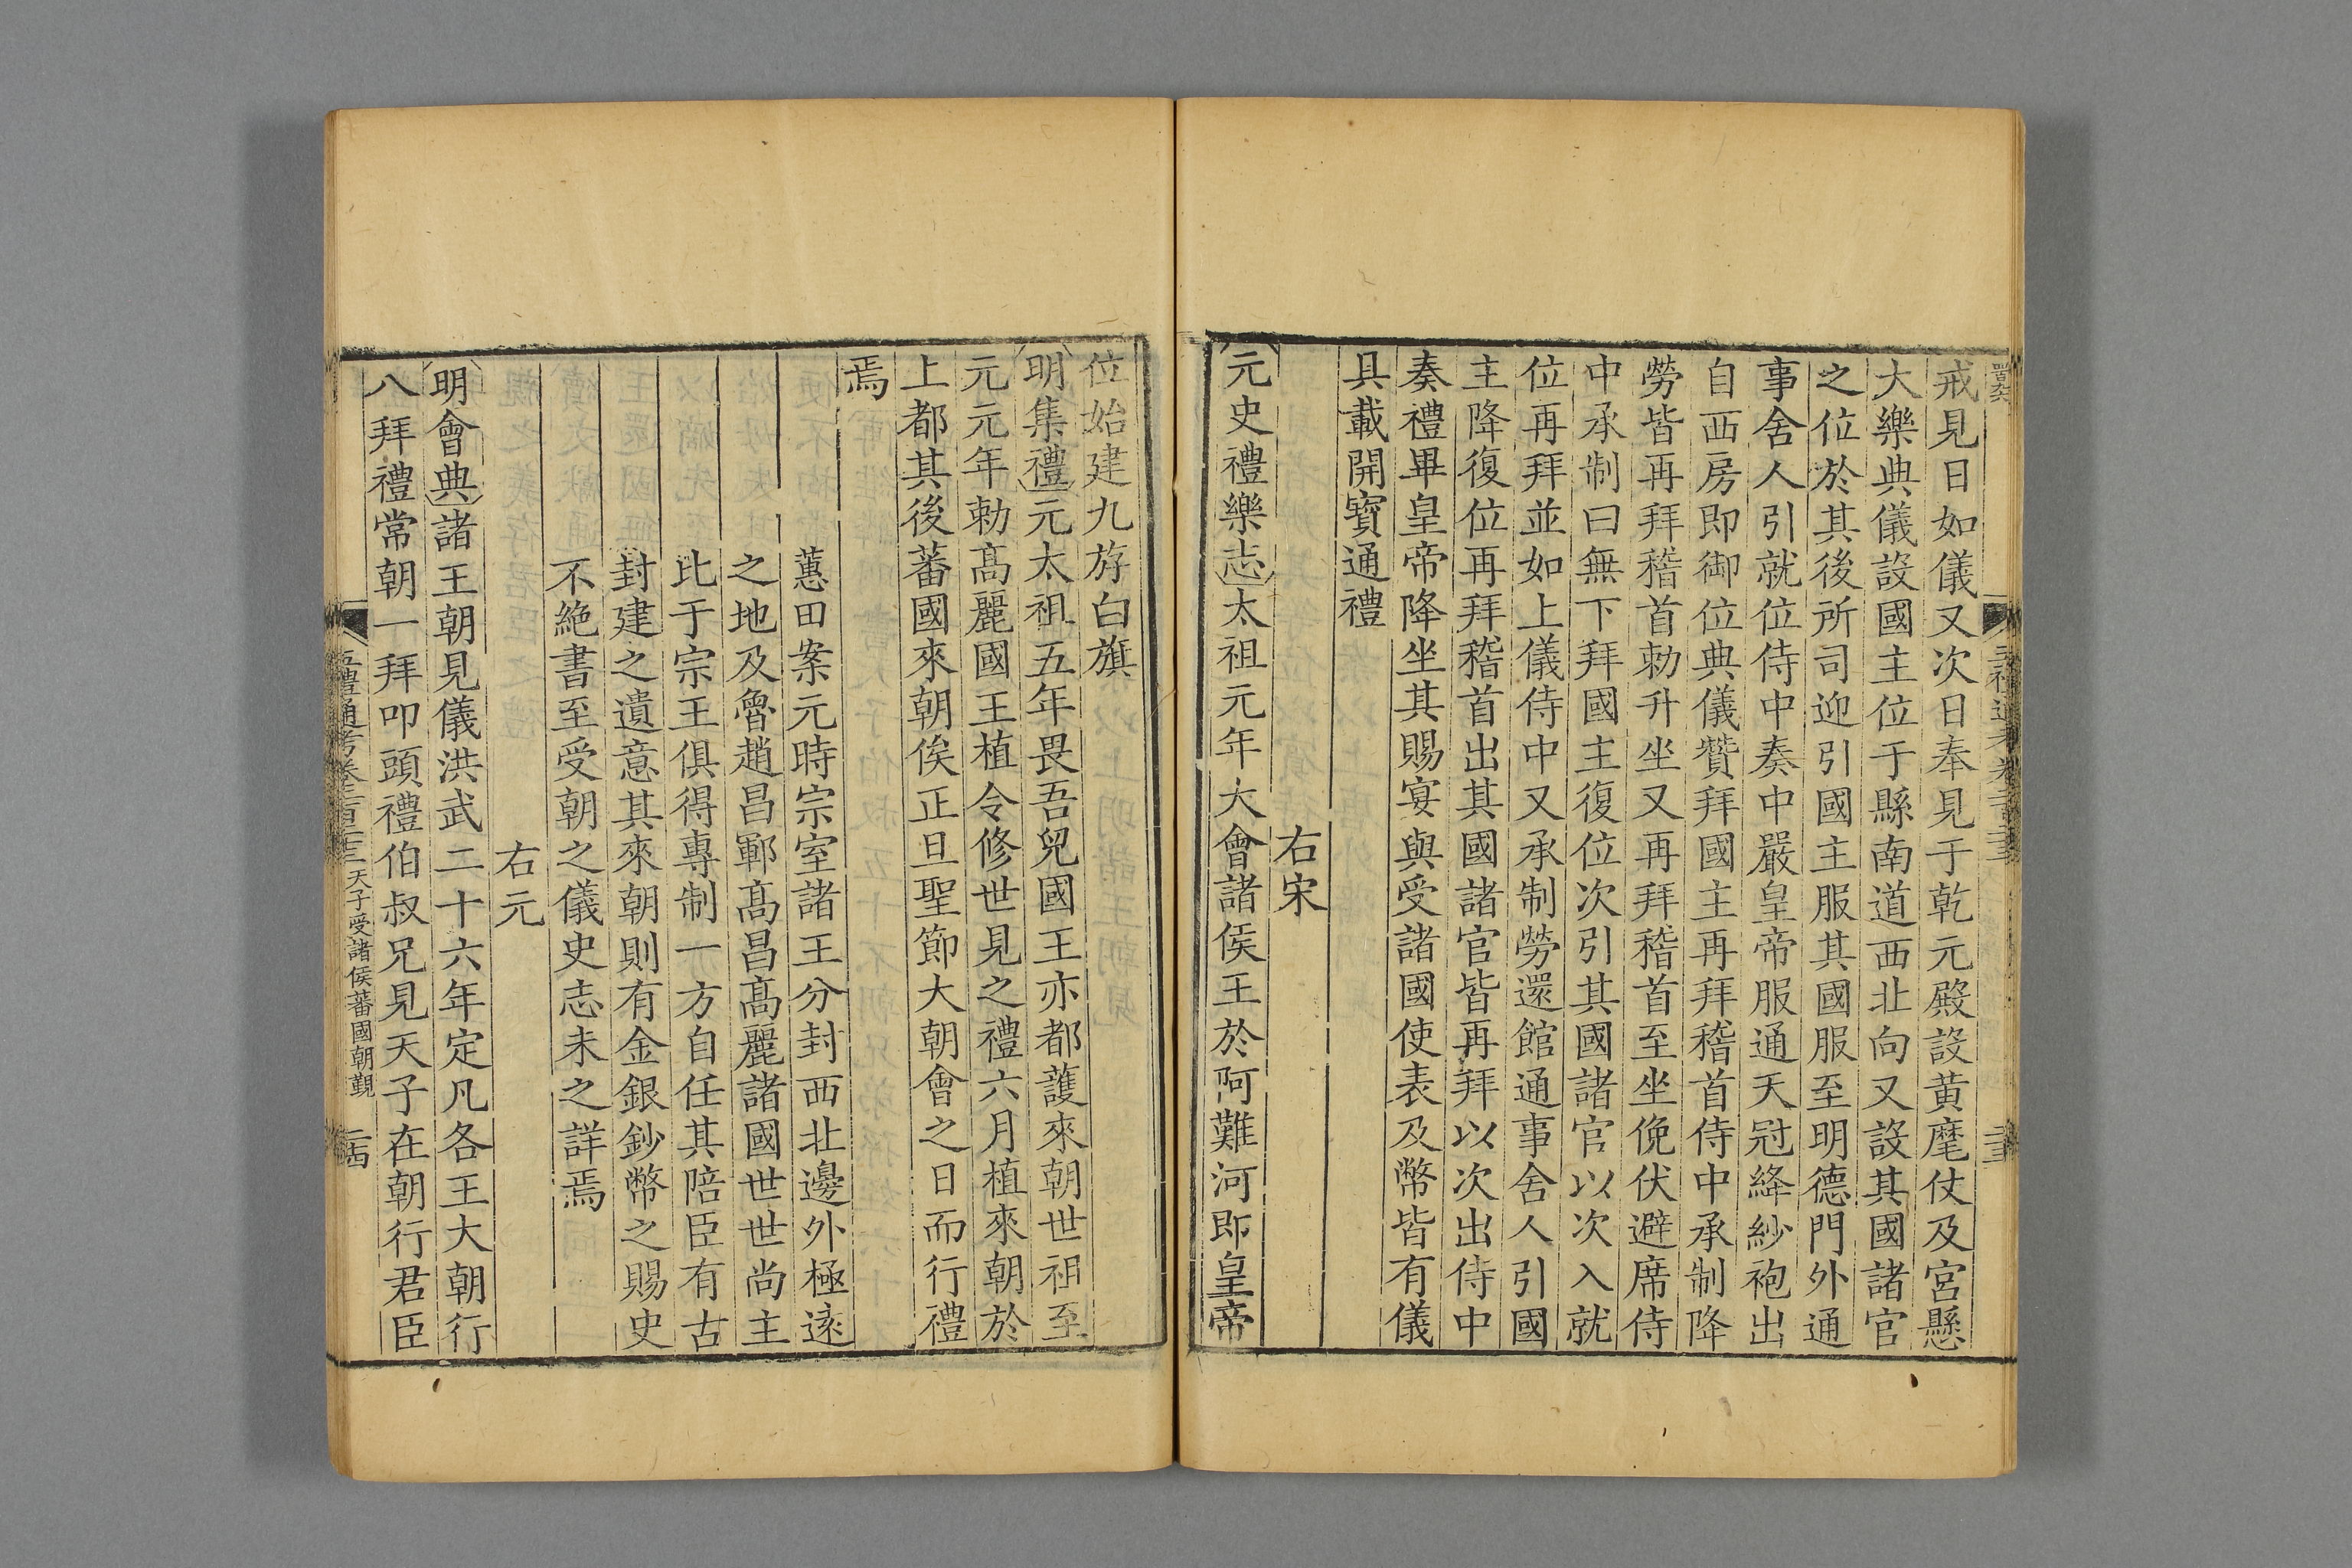 戒見日如儀又次日奉見于乾元殿設黄麾仗及宮懸
大樂典儀設國主位于縣南道西北向又設其國諸官
之位於其後所司迎引國主服其國服至明德門外通
事舍人引就位侍中奏中嚴皇帝服通天冠絳紗袍出
自西房即御位典儀贊拜國主再拜稽首侍中承制降
勞皆再拜稽首勅升坐又再拜稽首至坐俛伏避席侍
中承制曰無下拜國主復位次引其國諸官以次入就
位再拜並如上儀侍中又承制勞還館通事舍人引國
主降復位再拜稽首出其國諸官皆再拜以次出侍中
奏禮畢皇帝降坐其賜宴與受諸國使表及幣皆有儀
具載開寶通禮
右宋
元史禮樂志太祖元年大會諸侯王於阿難河即皇帝
位始建九斿白旗
明集禮元太祖五年畏吾兒國王亦都護來朝世祖至
元元年勅髙麗國王植令修世見之禮六月植來朝於
上都其後蕃國來朝俟正旦聖節大朝會之日而行禮
焉
蕙田案元時宗室諸王分封西北邊外極遠
之地及魯趙昌鄆髙昌髙麗諸國世世尚主
比于宗王俱得專制一方自任其陪臣有古
封建之遺意其來朝則有金銀鈔幣之賜史
不絶書至受朝之儀史志未之詳焉
右元
明會典諸王朝見儀洪武二十六年定凡各王大朝行
八拜禮常朝一拜叩頭禮伯叔兄見天子在朝行君臣
五禮通考卷二百二十三 天子受諸侯蕃國朝覲 二十四